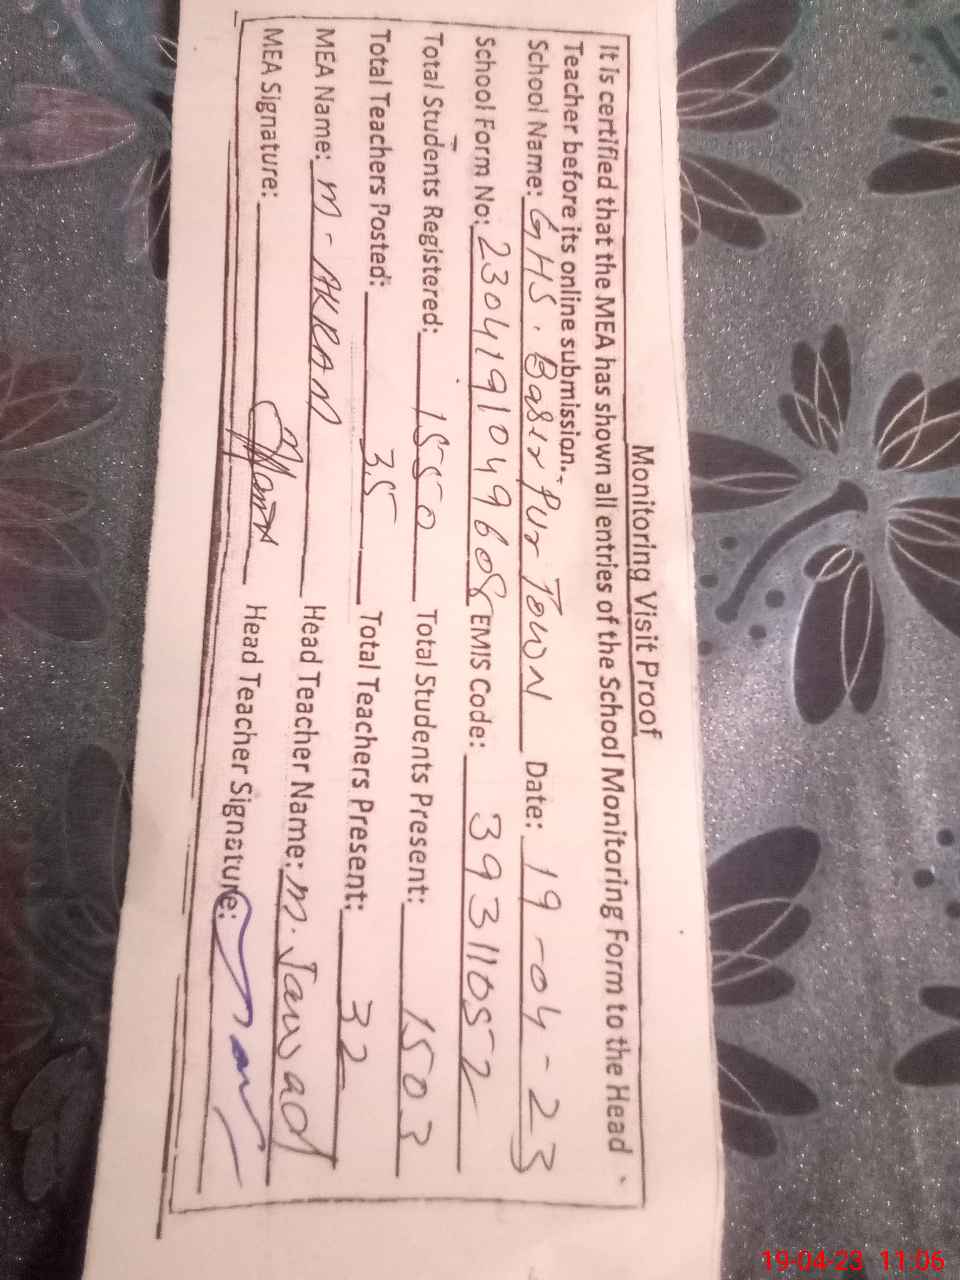 Monitoring Visit Proof
It is certified that the MEA has shown all entries of the School Monitoring Form to the Head
Teacher before its online submission.
School Name: GHS. Basir Pur Town Date: 19-04-23
School Form No: EMIS Code: 39311052
Total Students Registered: 1550 Total Students Present: 1503
Total Teachers Posted: 35 Total Teachers Present: 32
MEA Name: M-AKRAM Head Teacher Name: M. Jawad
MEA Signature: Head Teacher Signature:
19-04-23 11:06